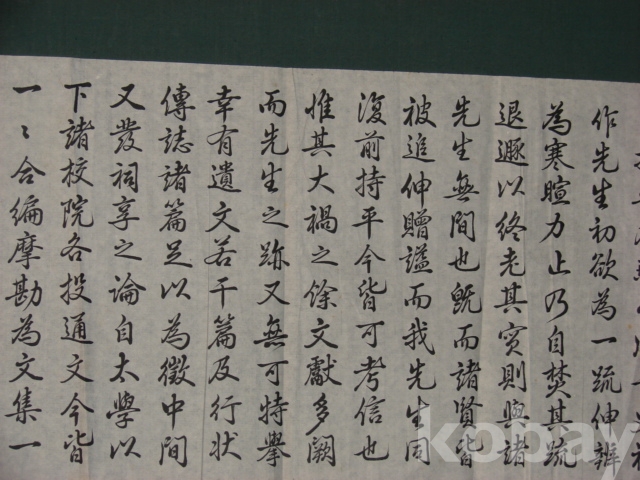 作先生初欲為一疏伸辨
為寒暄力止乃自焚其疏
退遯以終老其實則與諸
先生無間也旣而諸賢皆
被追伸贈諡而我先生同
復前持平今皆可考信也
惟其大禍之餘文獻多闕
而先生之跡又無可特擧
幸有遺文若干篇及行狀
傳誌諸篇足以為徵中間
又發祠享之論自太學以
下諸校院各投通文今皆
一〻合編摩勘為文集一
kobay